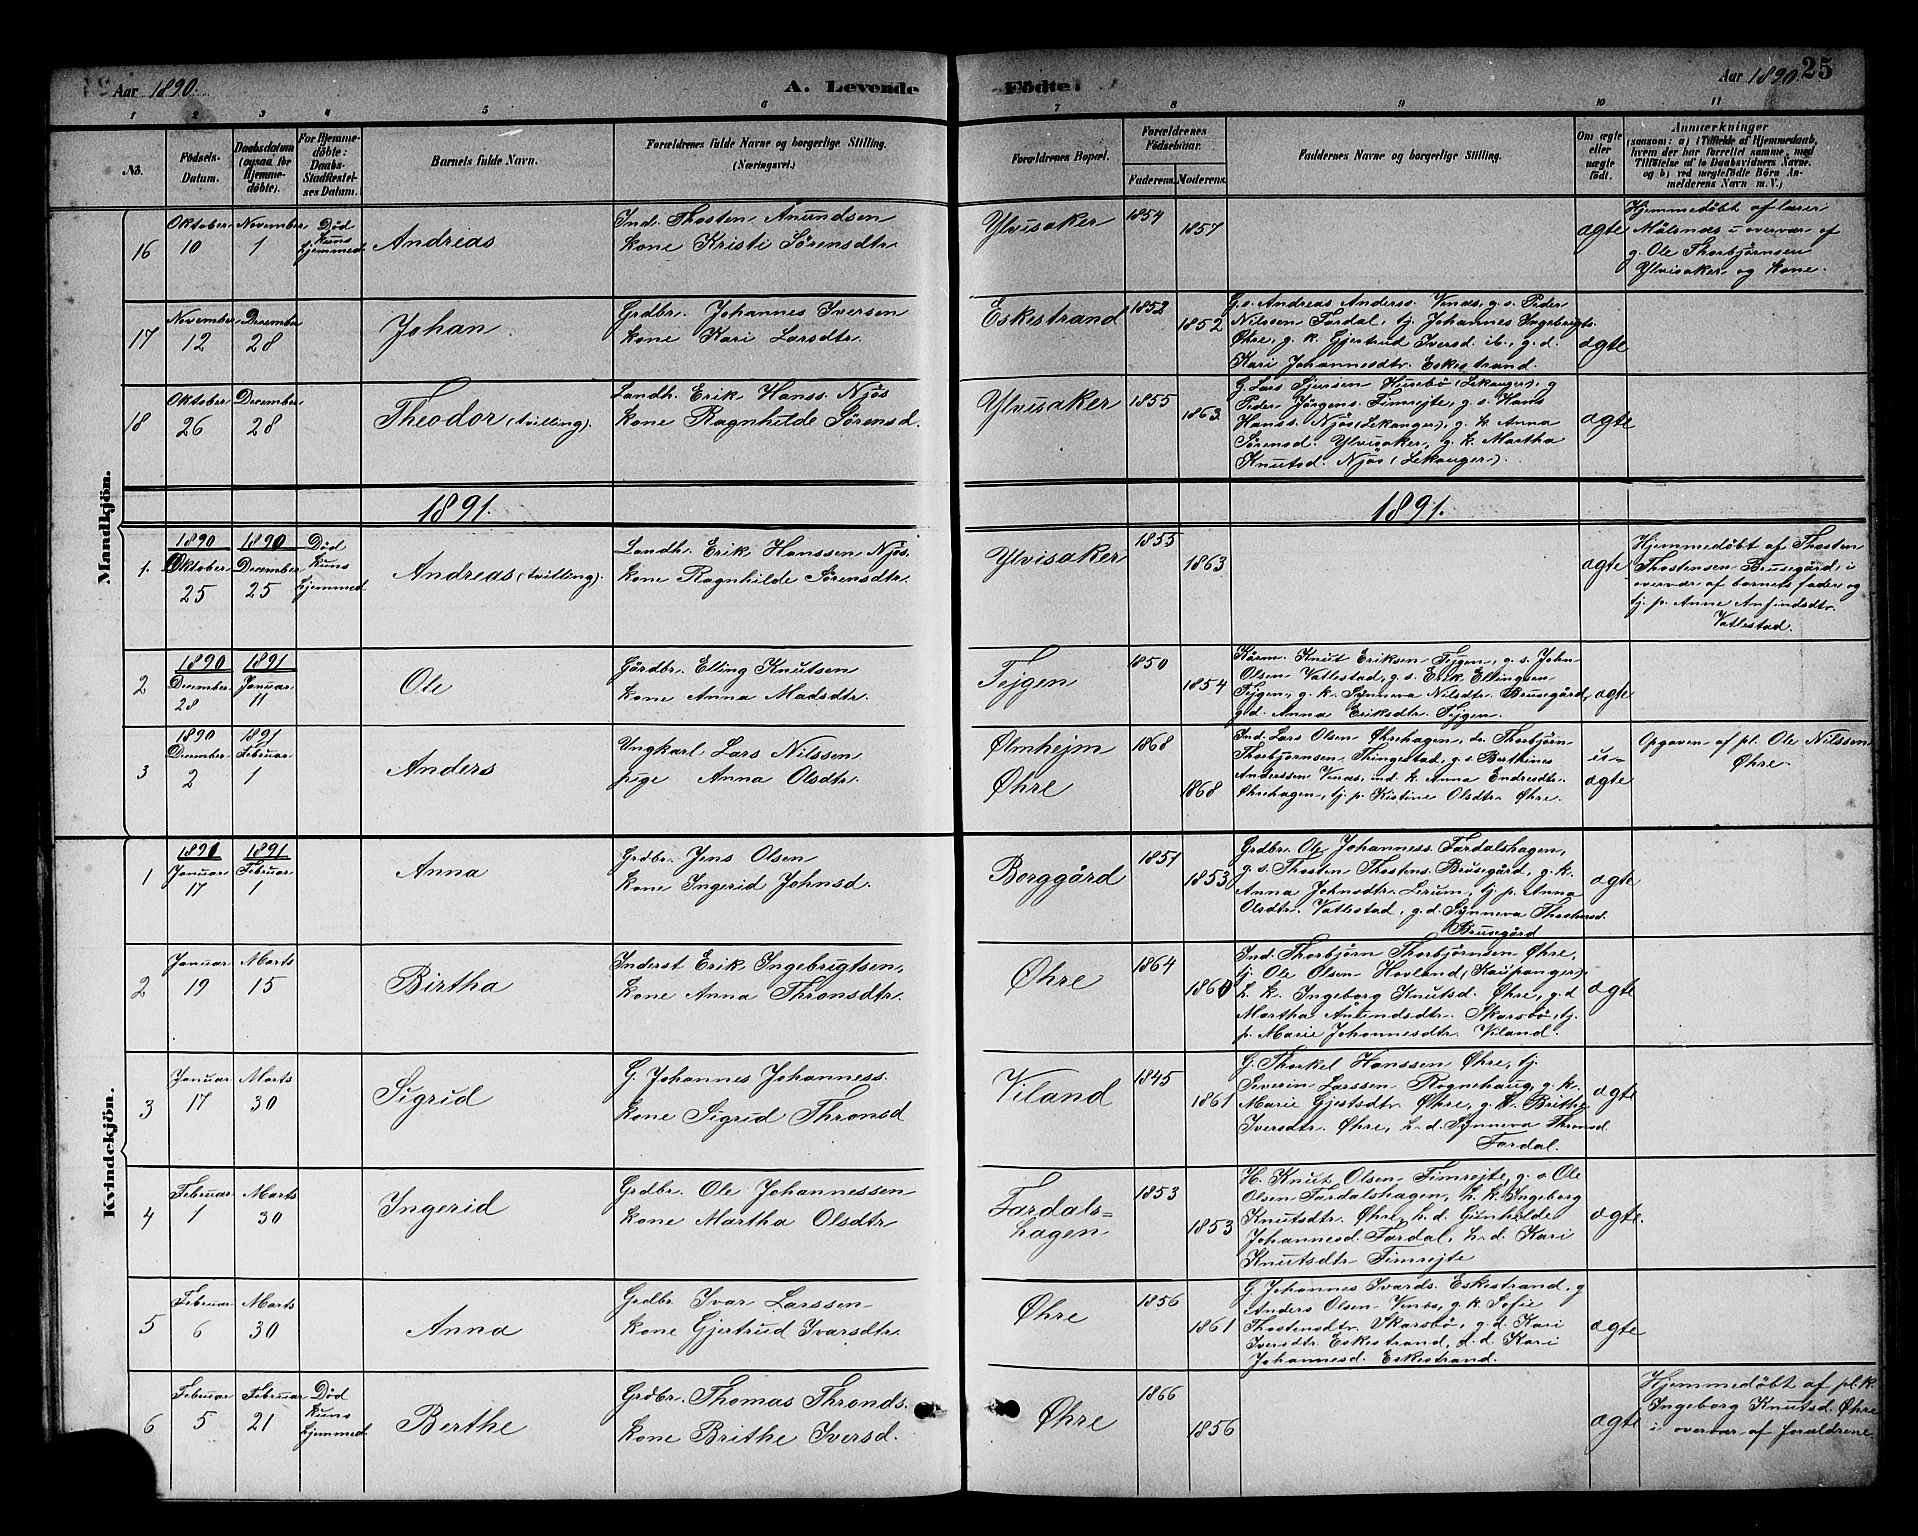 Aar 1890.
A. Levende
Födte.
Aar 1890. 25
1 2 3 4 5 6 7 8 9 10 11
No.
Födsels-Datum.
Daabsdatum (ogsaa for Hjemmedöbte).
For Hjemmedöbte: Daabs-Stadfæstelses Datum.
Barnets fulde Navn.
Forældrenes fulde Navne og borgerlige Stilling. (Næringsvei.)
Forældrenes Bopæl.
Forældrenes Födselsaar.
Faderens. Moderens.
Faddernes Navne og borgerlige Stilling.
Om ægte eller uægte födt.
Anmærkninger
(saasom: a) i Tilfælde af Hjemmedaab, hvem der har forrettet samme, med Tilföielse af to Daabsvidners Navne, og b) ved uægtefödte Börn Anmelderens Navn m. V.)
Mandkjön.
16 Oktober 10 November 1 Död kuns hjemmed Andreas
Ind. Thosten Anundsen
kone Kristi Sørensdtr.
Ylvisaker 1854 1857 ægte
Hjemmedöbt af lærer
Målsnæs i overvær af
g. Ole Thorbjørnsen
Ylvisaker og kone.
17 November 12 December 28 Johan
Grdbr. Johannes Iversen
kone Kari Larsdtr.
Eskestrand 1852 1852
G.s. Andreas Anderss. Vinæs, g.s. Peder
Nilssen Fardal, tj. Johannes Ingebrigts.
Øhre, g. k. Gjertrud Iversd. ib., g. d.
Kari Johannesdtr. Eskestrand.
ægte
18 Oktober 26 December 28 Theodor (tvilling).
Landh. Erik Hanss. Njøs
kone Ragnhilde Sørensd.
Ylvisaker 1855 1863
G. Lars Sjursen Husebø (Lekanger), g
Peder Jørgens. Fimrejte, g. s. Hans
Hanss. Njøs (Lekanger), g. k. Anna
Sørensd. Ylvisaker, g. k. Martha
Knutsd. Njøs (Lekanger).
ægte
1891. 1891.
1. 1890 Oktober 25 1890 December 25 Död kuns hjemmed Andreas (tvilling).
Landh. Erik Hanssen Njøs.
kone Ragnhilde Sørensdtr.
Ylvisaker 1855 1863 ægte
Hjemmedöbt af Thosten
Thostensen Brusegård, i
overvær af barnets fader og
tj. p. Anne Anfindsdtr.
Vatlestad.
2 1890 December 28 1891 Januar 11 Ole
Gårdbr. Elling Knutsen
kone Anna Madsdtr.
Fejgen 1850 1854
Kårm. Knut Eriksen Fejgen, g. s. John
Olsen Vatlestad, g. s. Erik Ellingsen
Fejgen, g. k. Synneva Nilsdtr. Brusegård,
g. d. Anna Eriksdtr. Fejgen.
ægte
3 1890 December 2 1891 Februar 1 Anders
Ungkarl Lars Nilssen
pige Anna Olsdtr.
Ølmhejm
Øhre
1868 1868
Ind. Lars Olsen Øhrehagen, do. Thorbjørn
Thorbjørnsen Thingestad, g. s. Berthines
Anderssen Vinæs, ind. k. Anna Endresdtr.
Øhrehagen, tj. p. Kistine Olsdtr. Øhre.
u-ægte
Opgaven af pl. Ole Nilssen
Øhre.
Kvindekjön.
1 1891 Januar 17 1891 Februar 1 Anna
Grdbr. Jens Olsen
kone Ingerid Johnsd.
Borggård 1851 1853
Grdbr. Ole Johanness. Fardalshagen,
g. s. Thosten Thostens. Brusegård, g. k.
Anna Johnsdtr. Lerum, tj. p. Anna
Olsdtr. Vatlestad, g. d. Synneva Thostensd.
Brusegård
ægte
2 Januar 19 Marts 15 Birtha
Inderst Erik Ingebrigtsen,
kone Anna Thronsdtr.
Øhre 1864 1860
Ind. Thorbjørn Thorbjørnsen Øhre,
tj. Ole Olsen Hovland (Kaupanger),
h. k. Ingeborg Knutsd. Øhre, g. d
Martha Anundsdtr. Skarsbø, tj.
p. Marie Johannesdtr. Viland.
ægte
3 Januar 17 Marts 30 Sigrid
G. Johannes Johanness.
kone Sigrid Thronsd
Viland 1845 1861
G. Thorkel Hanssen Øhre, tj.
Severin Larssen Rognehaug, g. k.
Marie Gjestsdtr. Øhre, g. k. Brithe
Iversdtr. Øhre, h. d. Synneva Thronsd.
Fardal.
ægte
4 Februar 1 Marts 30 Ingerid
Grdbr. Ole Johannessen
kone Martha Olsdtr
Fardals=
hagen
1853 1853
H. Knut Olsen Fimrejte, g. s Ole
Olsen Fardalshagen, h. k. Ingeborg
Knutsdtr. Øhre, h. d. Gunhilde
Johannesd. Fardal, h. d. Kari
Knutsdtr Fimrejte
ægte.
5 Februar 6 Marts 30 Anna
Grdbr. Ivar Larssen
kone Gjertrud Ivarsdtr.
Øhre 1856 1861
G Johannes Ivards. Eskestrand, g
Anders Olsen Vinæs, g. k. Sofie
Thostensdtr Skarsbø, g. d. Kari
Iversdtr Eskestrand, d. d. Kari
Johannesd. Eskestrand.
ægte
6 Februar 5 Februar 21 Död kuns hjemmed Berthe
Grdbr. Thomas Thronds.
kone Brithe Iversd.
Øhre 1866 1856 ægte
Hjemmedöbt af pl. k.
Ingeborg Knutsd. Øhre
i overvær af forældrene.